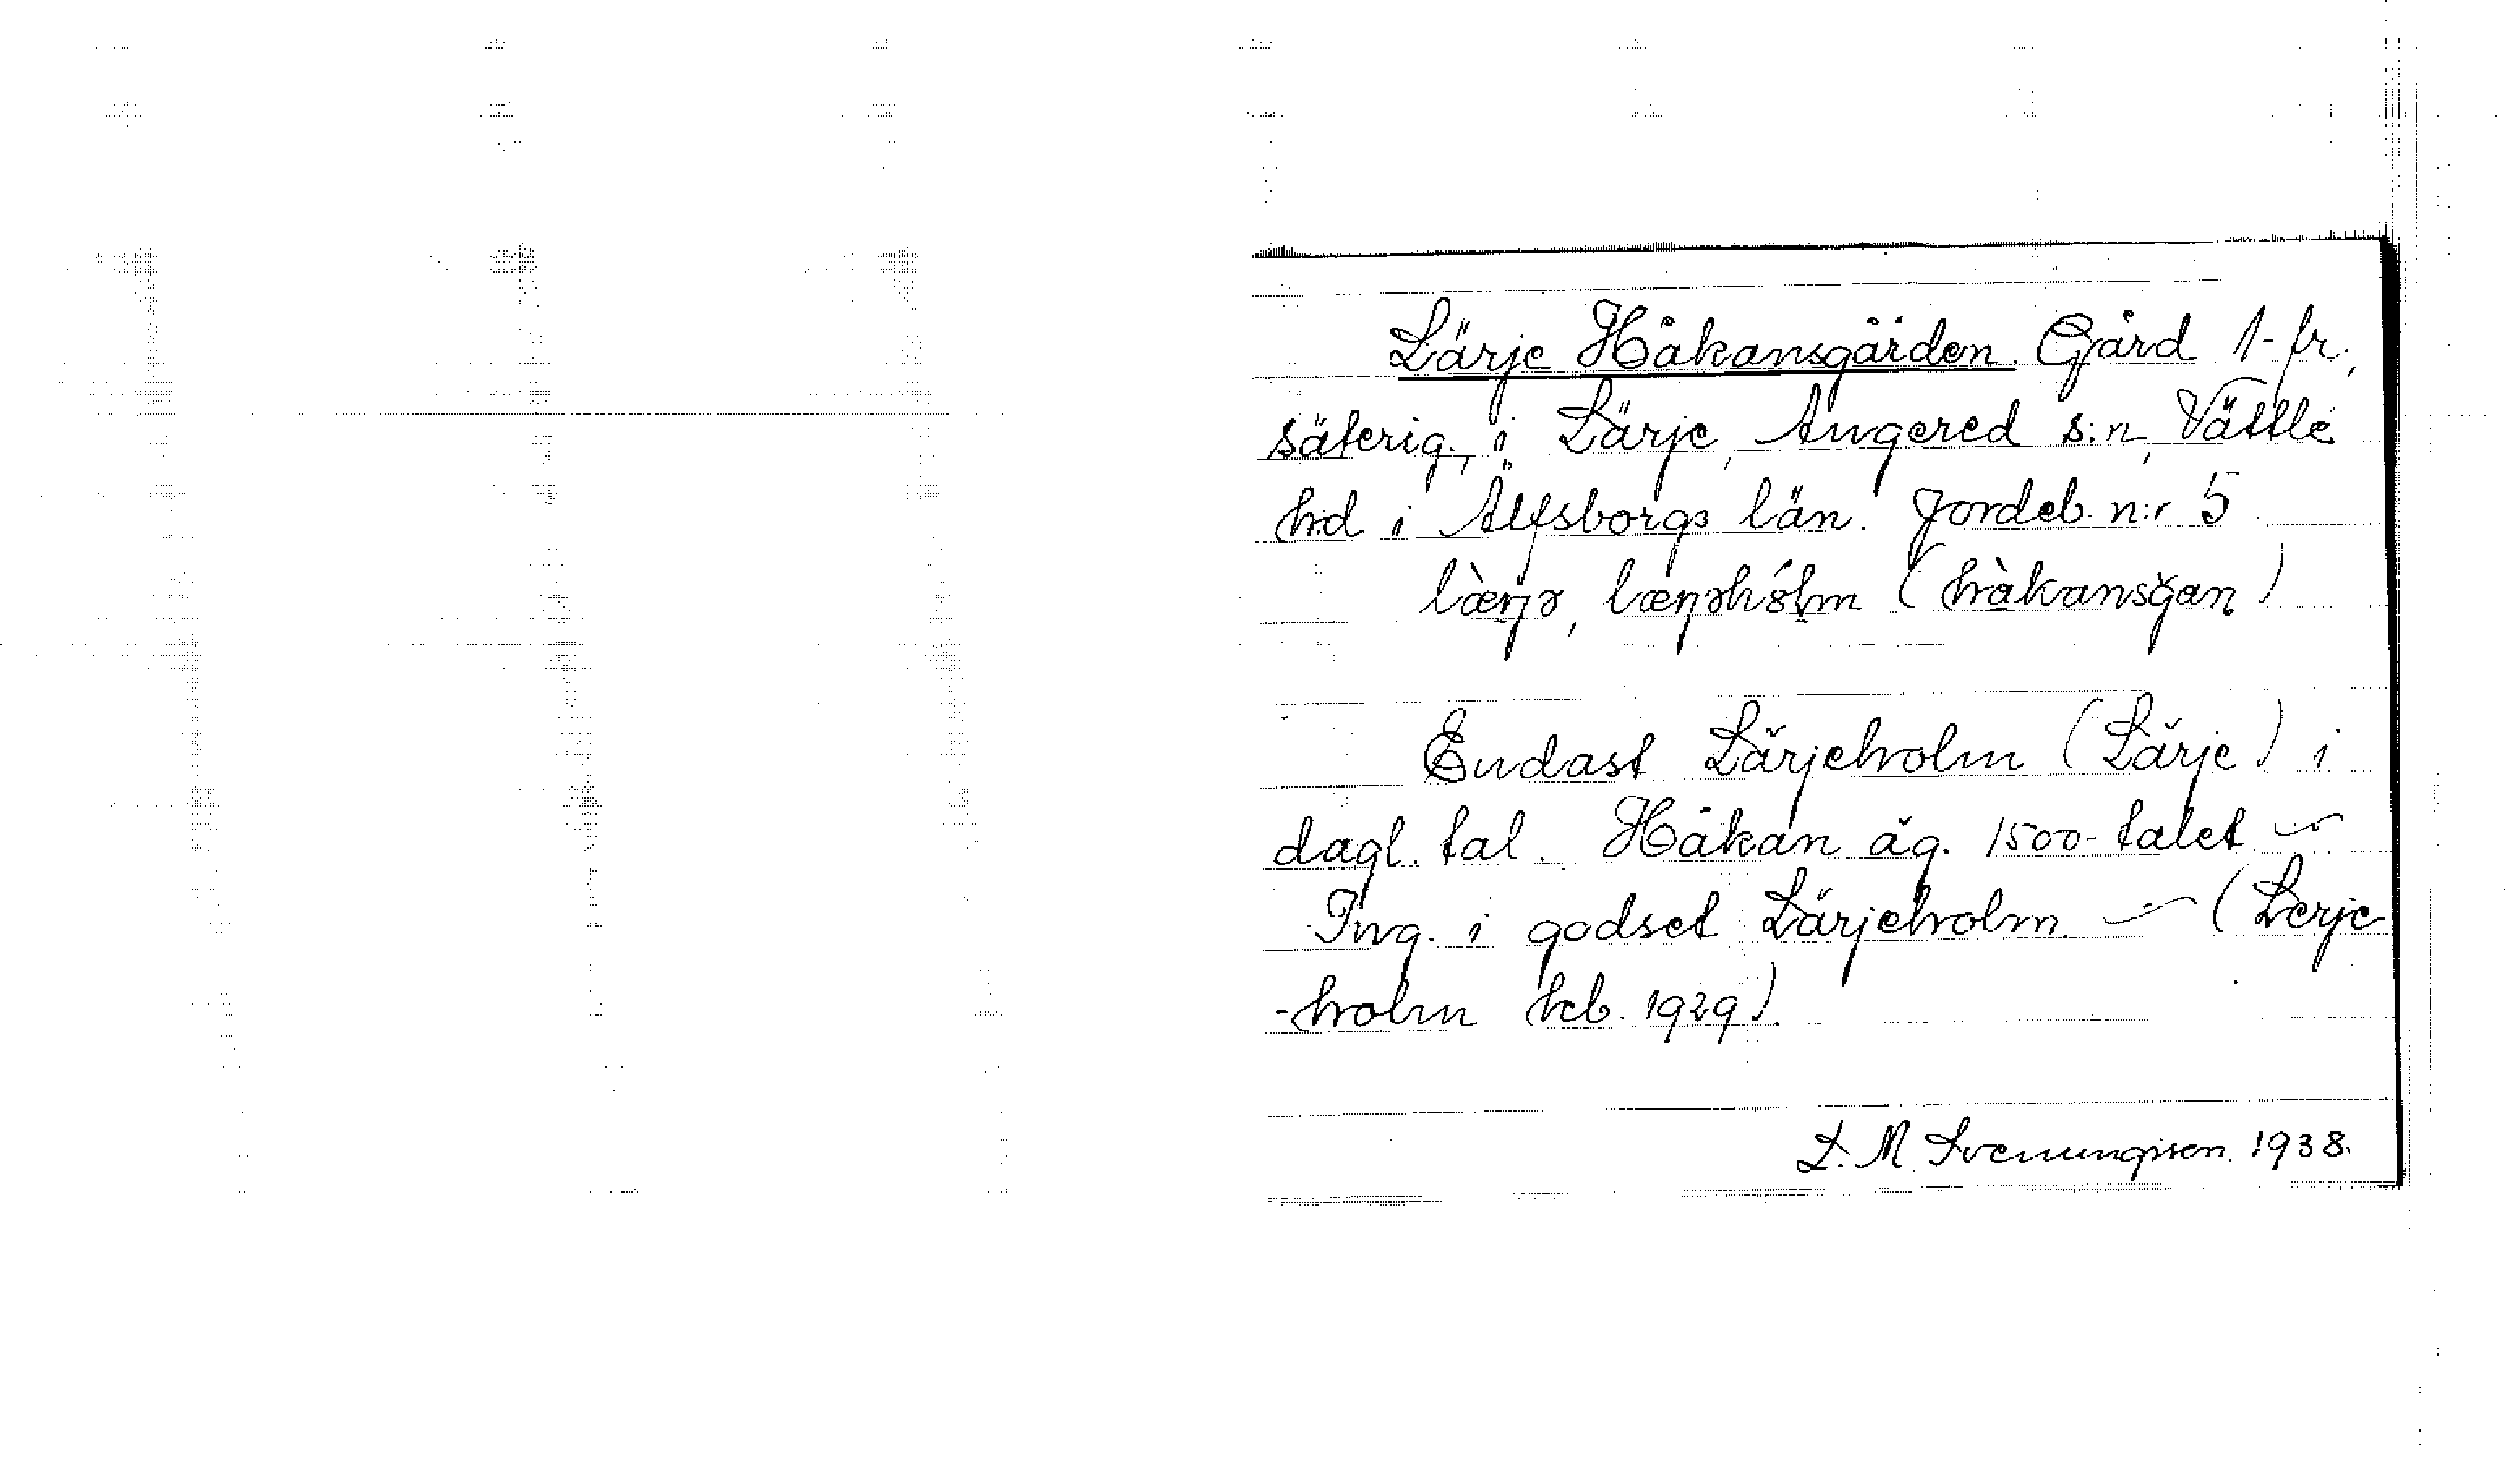 Lärje Håkansgården. Gård 1 fr.,
säterig., i Lärje, Angered s:n, Vättle
h:d i Älfsborgs län. Jordeb. n:r 5.
Endast Lärjeholm (Lärje) i
dagl. tal. Håkan äg. 1500-talet
Ing. i godset Lärjeholm. (Lerje-
-holm kcb. 1929).
L. M. Svenungsson. 1938.